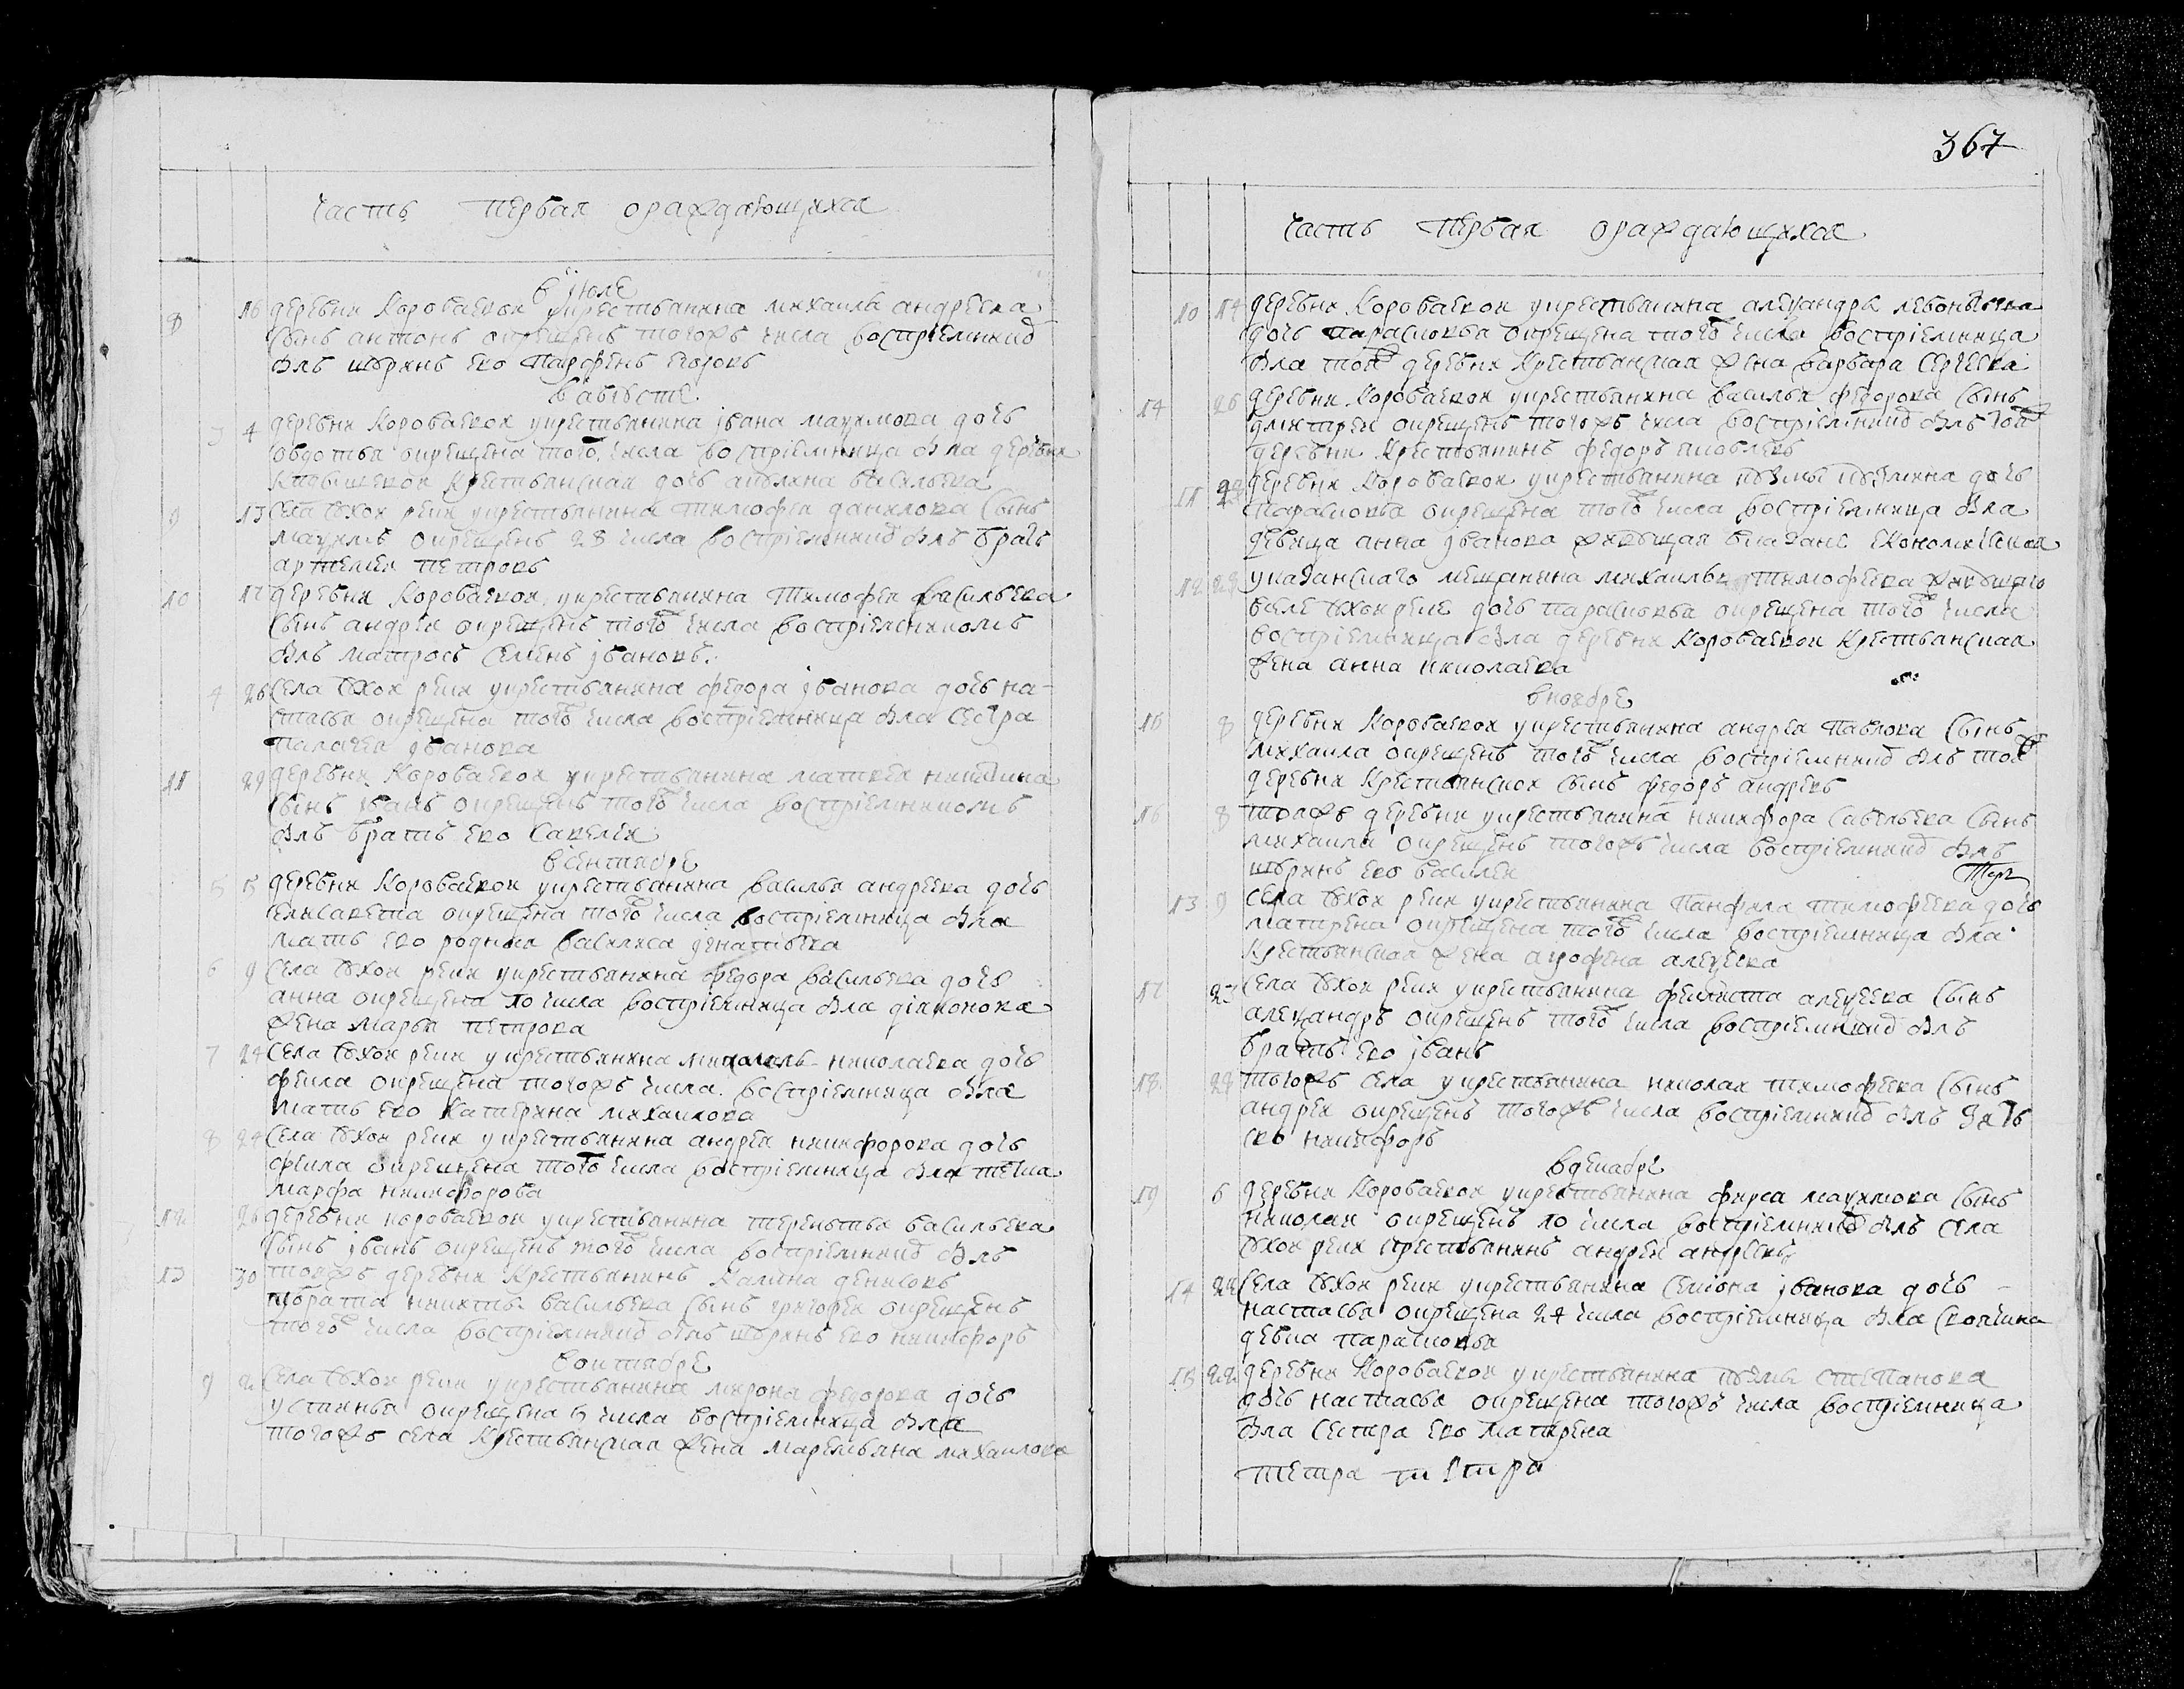 часть первая ораждающихся
в июле
8 16 деревни Короваевой укрестьянина михаила андреева
сынъ антонъ окрещенъ тогожъ числа восприемникѡ
былъ шуринъ ево Парфенъ егоровъ
в августе
3 4 деревни Короваевой укрестьянина iвана маѯимова дочь
овдотья окрещена того числа восприемница была деревни
крестьянская дочь акулина васильева
9 13 села сухой реки укрестьянина тимофея данилова сынъ
маѯимъ окрещенъ 23 числа восприемникѡ былъ братъ
артемей петровъ
10 17 деревни Короваевой укрестьянина Тимофея васильева
сынъ андрей окрещенъ того числа восприемникомъ
былъ матросъ семенъ iвановъ
4 26 села сухой реки укрестьянина федора iванова дочь на-
стасья окрещена того числа восприемница была сестра
палагея iванова
11 29 деревни Короваевой укрестьянина матвея никитина
сынъ iванъ окрещенъ того числа восприемникомъ
былъ братъ ево савелей
в сентябре
5 5 деревни Короваевой укрестьянина василья андреева дочь
елисавета окрещена того числа восприемница была
мать ево родная василиса игнатьева
6 9 села сухой реки укрестьянина федора васильева дочь
анна окрещена 10 числа восприемница была дiяконова
жена марья петрова
7 24 села сухой реки укрестьянина николаева дочь
фекла окрещена тогожъ числа восприемница была
мать ево катерина михаилова
8 24 села сухой реки укрестьянина андрея никифорова дочь
фекла окрещена того числа восприемница была тетка
марфа никифорова
12 26 деревни короваевой укрестьянина терентья васильева
сынъ iванъ окрещенъ того числа восприемникѡ былъ
тоежъ деревни Крестьянинъ Калина денисовъ
13 30 убрата никиты васильева сынъ григорей окрещенъ
того числа восприемникѡ былъ шуринъ ево никифоръ
в октябре
9 2 села сухой реки укрестьянина мирона федорова дочь
устинья окрещена 5 числа восприемница была
тогожъ села Крестьянская жена маремьяна михаилова
367
часть Первая ораждающихся
10 14 деревни Короваевой укрестьянина алеѯандра левонтьева
дочь парасковья окрещена того числа восприемница
была той деревни Крестьянская жена варвара сергеева
14 26 деревни Короваевой укрестьянина василья федорова сынъ
дмитрей окрещенъ тогожъ числа восприемникѡ былъ той
деревни Крестьянинъ федоръ яковлевъ
11 28 деревни Короваевой укрестьянина кузмы кузмина дочь
парасковья окрещена того числа восприемница была
девица анна iванова живущая вказане
12 28 указанскаго мещанина михаила тимофеева живущаго
вселе сухой реке дочь парасковья окрещена того числа
восприемница была деревни Короваевой Крестьянская
жена анна николаева
в ноябре
15 8 деревни Короваевой укрестьянина андрея Павлова сынъ
михаила окрещенъ того числа восприемникѡ былъ той
деревни Крестьянской сынъ федоръ андреевъ
16 8 тояжъ деревни укрестьянина никифора савельева сынъ
михаила окрещенъ тогожъ числа восприемникѡ былъ
шуринъ ево василей
13 9 села сухой реки укрестьянина Панфила тимофеева дочь
матрена окрещена того числа восприемница была
Крестьянская жена агрофена алеѯеева
17 27 села сухой реки укрестьянина феклиста алеѯеева сынъ
алеѯандръ окрещенъ того числа восприемникѡ былъ
братъ ево iванъ
18 28 тогожъ села укрестьянина николая тимофеева сынъ
андрей окрещенъ тогожъ числа восприемникѡ былъ зять
ево никифоръ
в декабре
19 6 деревни Короваевой укрестьянина фирса маѯимова сынъ
николай окрещенъ 10 числа восприемникѡ былъ села
сухой реки крестьянинъ андрей андреевъ
14 22 села сухой реки укрестьянина семiона iванова дочь
настасья окрещена 24 числа восприемница была своячина
девка парасковья
15 22 деревни Короваевой укрестьянина кузмы степанова
дочь настасья окрещена тогожъ числа восприемница
была сестра ево матрена
петра петра